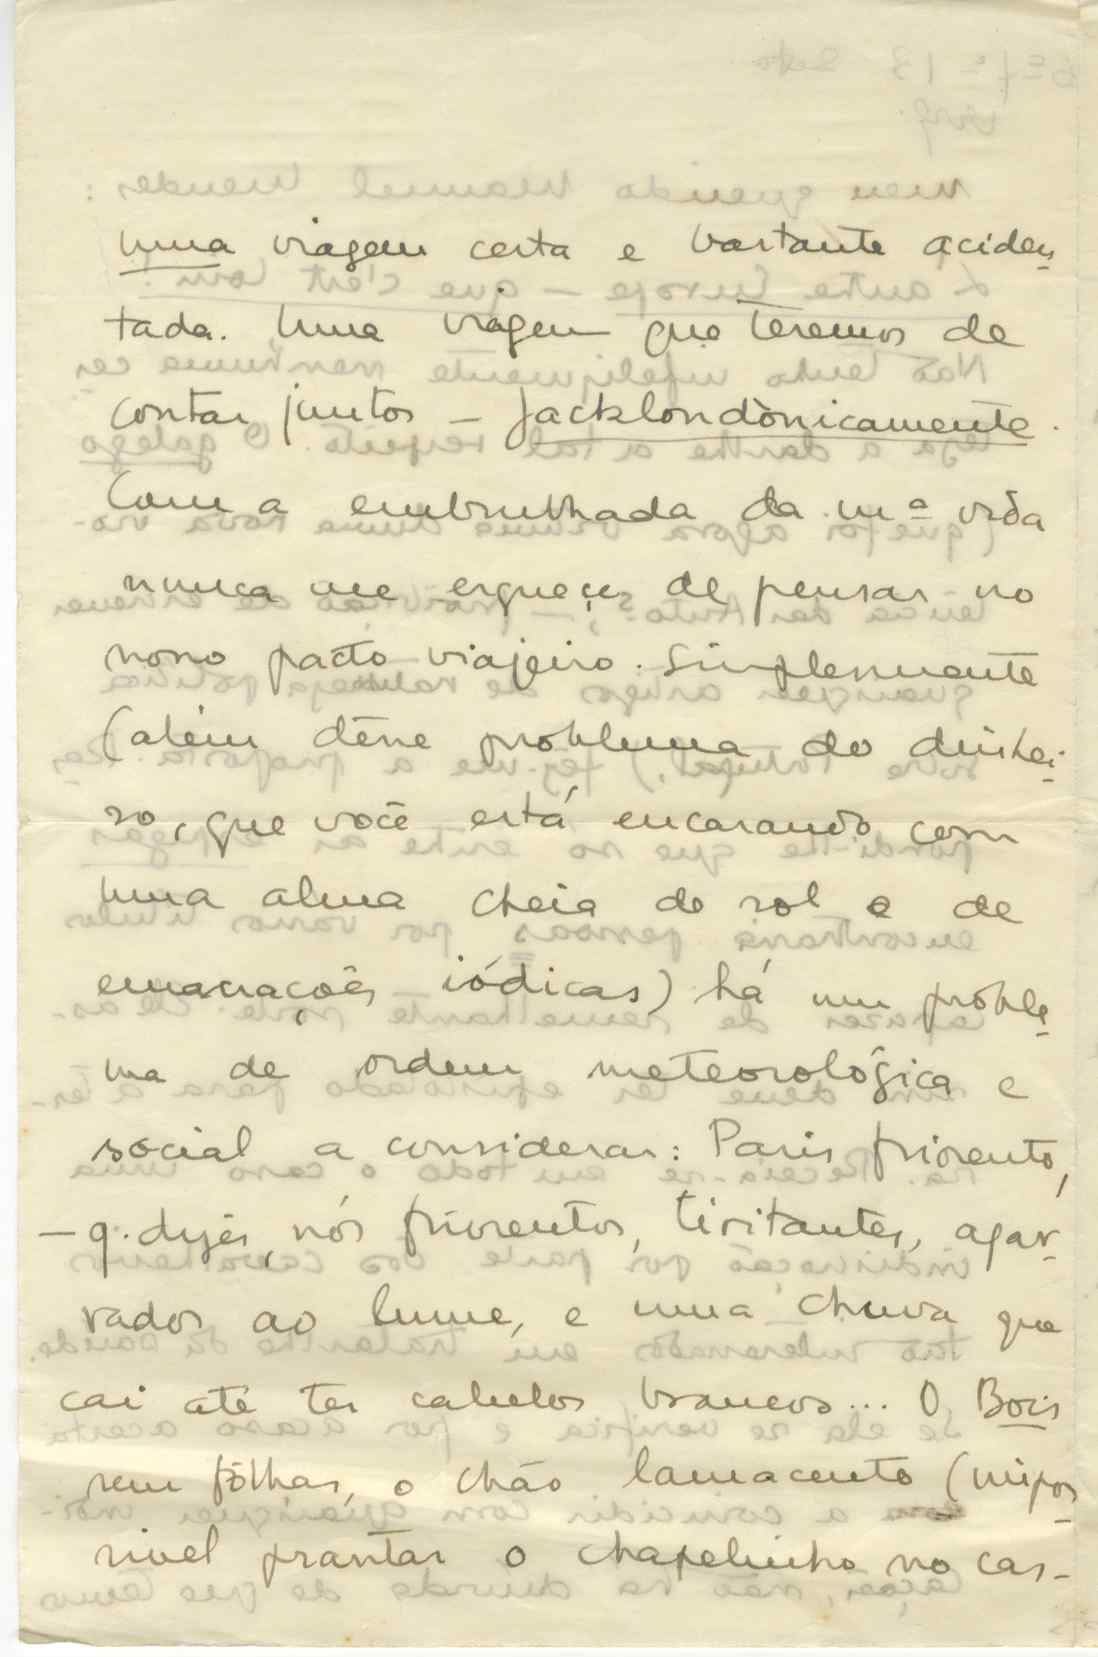 uma viagem certa e bastante aciden-
tada. Uma viagem que teremos de
contar juntos – jacklondònicamente.
Com a embrulhada da m.ª vida
nunca me esqueceu de pensar no
nosso pacto viajeiro. Simplesmente
(além dêsse problema do dinhei-
ro, que você está encarando com
uma alma cheia de sol e de
emanações iódicas) há um proble-
ma de ordem meteorológica e
social a considerar: Paris friorento,
– q. dizer, nós friorentos, tiritantes, agar-
rados ao lume, e uma chuva que
cai até ter cabelos brancos... O Bois
sem fôlhas, o chão lamacento (impos-
sivel prantar o chapelinho no cas-